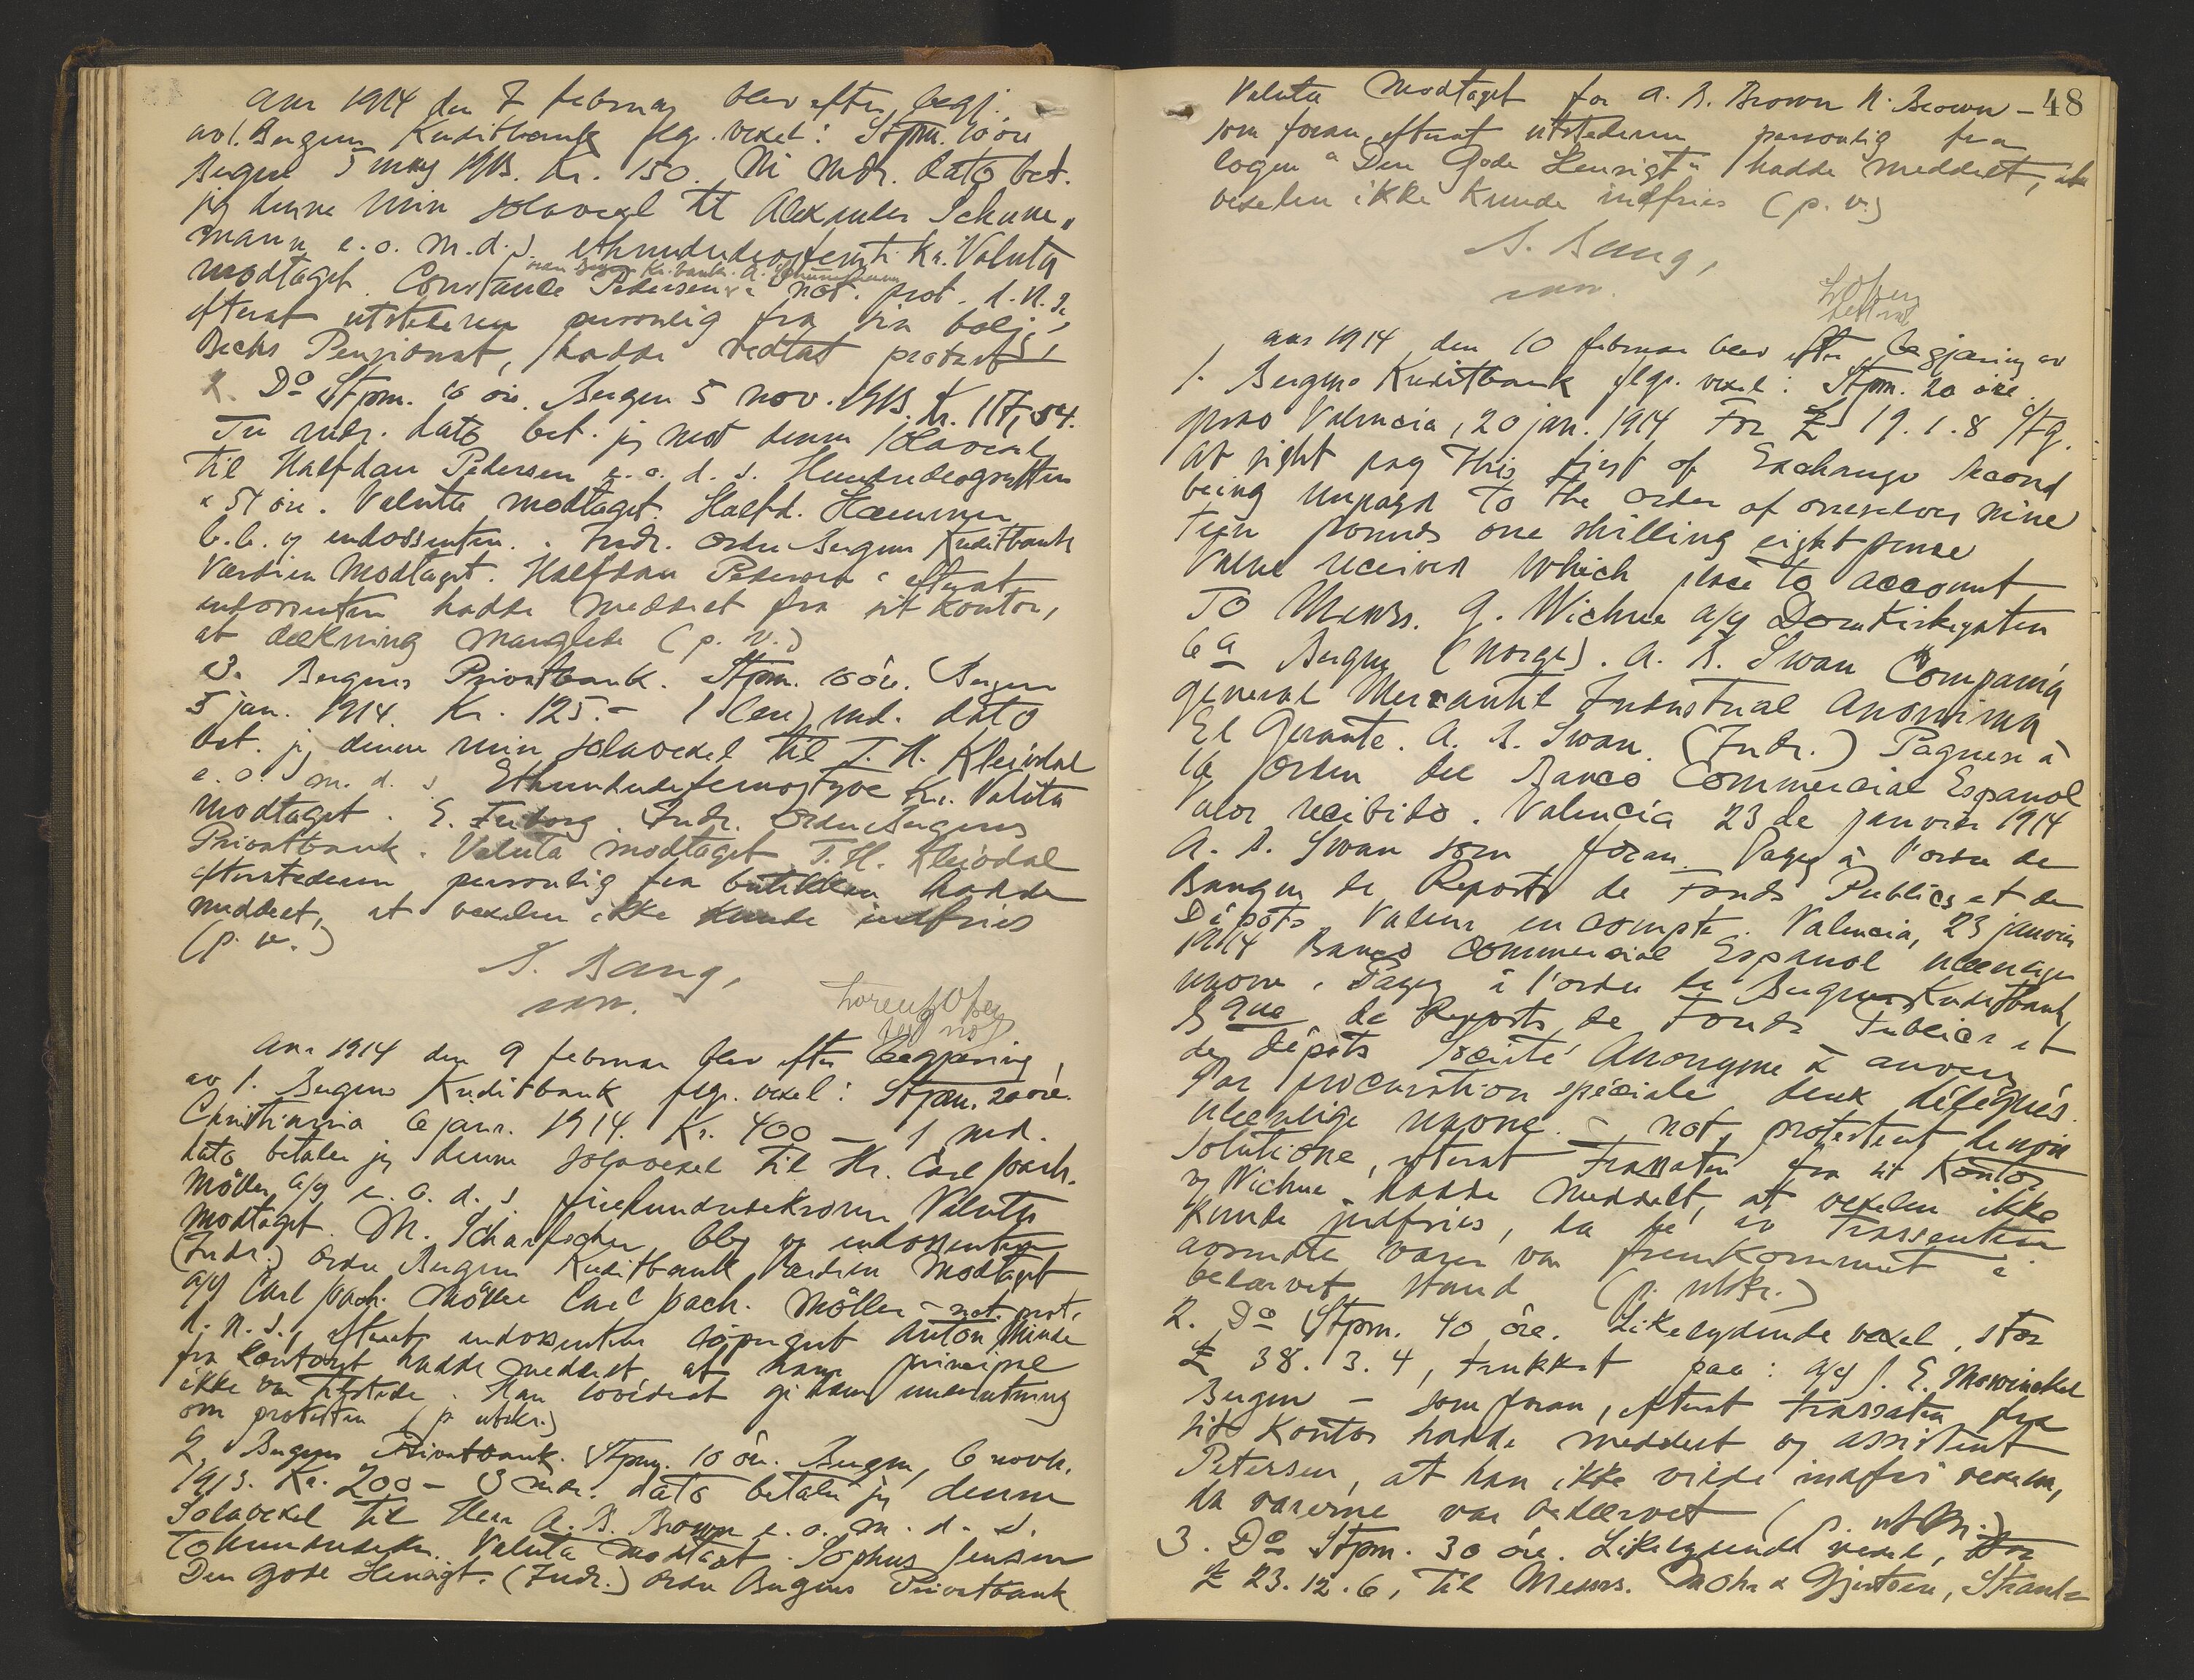 Aar 1914 den 7 februar blev efter begj.
av 1. Bergens Kreditbank flg. vexel: Stpm. 10 öre
Bergen 5 mai 1913. Kr. 150. Ni mdr. dato bet.
jeg denne min solavexel til Alexander Schune„
mann e. o. m. d. s. ethundredeogfemti Kr. Valuta
Bergens Kr.bank. A. Schunemann
modtaget. Constance Pedersen not. prot. d. n. s.,
efterat utstederen personlig fra sin bolig,
Bechs Pensionat, hadde vedtat protest
2. Do Stpm. 10 öre. Bergen 5 nov. 1913. Kr. 117,54.
Tre mdr. dato bet. jeg mot denne solavexel
til Halfdan Pedersen e. o. d. s. Hundredeogsytten
& 54 öre. Valuta modtaget. Halfd.
b.b. og endossenten. Indr. Ordre Bergens Kreditbank
Værdien modtaget. Halfdan Pedersen efterat
endossenten hadde meddelt fra sit kontor,
at dækning manglede (p. v.)
3. Bergens Privatbank. Stpm. 10 öre. Bergen
5 jan. 1914. Kr. 125.- 1 (en) md. dato
bet. jeg denne min solavexel til T. H. Kleivdal
e. o. m. d. s. Ethundredefemogtyve Kr. Valuta
modtaget. E. Friborg. Indr. Ordre Bergens
Privatbank. Valuta modtaget T. H. Kleivdal
efterat utstederen personlig fra butikken hadde
meddelt, at vexelen ikke kunde indfries
(p. v.)
S. Bang,
Lorentz Olsen
Aar 1914 den 9 februar blev efter begjæring
av 1. Bergens Kreditbank flg. vexel: Stpm. 20 öre.
Christiania 6 janr. 1914. Kr. 400 — 1 md.
dato betaler jeg denne solavexel til Hr. Carl Joach.
Möller a/s e. o. d. s. firehundredekroner Valuta
modtaget. M. Scharfscher bbg og endossenten
(Indr.) Ordre Bergens Kreditbank Værdien modtaget
a/s Carl Joach. Möller Carl Joach. Möller - not. prot.
d. n. s., efterat endossentens Anton Minde
fra kontoret hadde meddelt at hans principal
ikke var tilstede. Han lovedeat gi ham underretning
om protesten (p. utskr.)
2 Bergens Privatbank. Stpm. 10 öre. Bergen, 6 novb.
1913. Kr. 200 - 3 mdr. dato betaler jeg denne
Solavexel til Herr A. B. Brown e. o. m. d. s.
Tohundredekr. Valuta modtaget. Sophus Jensen
Den gode Hensigt. (Indr.) Ordre Bergens Privatbank
48
Valuta modtaget for A. B. Brown N. Brown -
som foran, efterat utstederen personlig fra
logen "Den Gode Hensigt" hadde meddelt, at
vexelen ikke kunde indfries (p. v.)
S. Bang,
Aar 1914 den 10 februar blev efter begjæring av
1. Bergens Kreditbank flg. vexel: Stpm. 20 öre.
Grao Valencia, 20 jan. 1914 For £ 19.1.8 Stg.
At sight pay this first of Exchange second
being unpayd to the order of ourselves nine
teen pounds one shilling eight pense
Value received which place to account
To Messrs. G. Wichne a/s Domkirkegaten
6a Bergen (Norge). A. B. Swan Compania
General Mercantil Industrial Anonima
El Gerante. A. B. Swan. (Indr.) Paguese à
la orden del Banco Commercial Espanol
valor recibido. Valencia 23 de janvier 1914
A. B. Swan som foran. Payez à l'ordre de
Banque de Reports de Fonds Publics et de
Dépots Valeur en compte. Valencia, 23 janvier
1914 Banco Commercial Espanol ulæselige
navne. Payez à l'ordre de Bergens Kreditbank
Bque de Reports de Fonds Publics et
de dépots Société Anonyme à anvers
Par procuration spéciale deux délégués.
Ulæselige navne. - not. protesteret de non
solutione, efterat Trassaten fra sit kontor
v/ Wichne hadde meddelt, at vexelen ikke
kunde indfries, da de av Trassenten
avsendte varer var fremkommet i
bedærvet stand (p. utskr.)
2. Do Stpm. 40 öre. Likelydende vexel, stor
£ 38.3.4, trukket paa: a/s J. E. Mowinckel
Bergen - som foran, efterat trassaten fra
sit kontor hadde meddelt v/ assistent
Petersen, at han ikke vilde indfri vexelen,
da varerne var bedærvet (p. utskr.)
3. Do Stpm. 30 öre. Likelydende vexel, stor
£ 23.12.6, til Messrs. Mohr & Gjertsen, Strand=